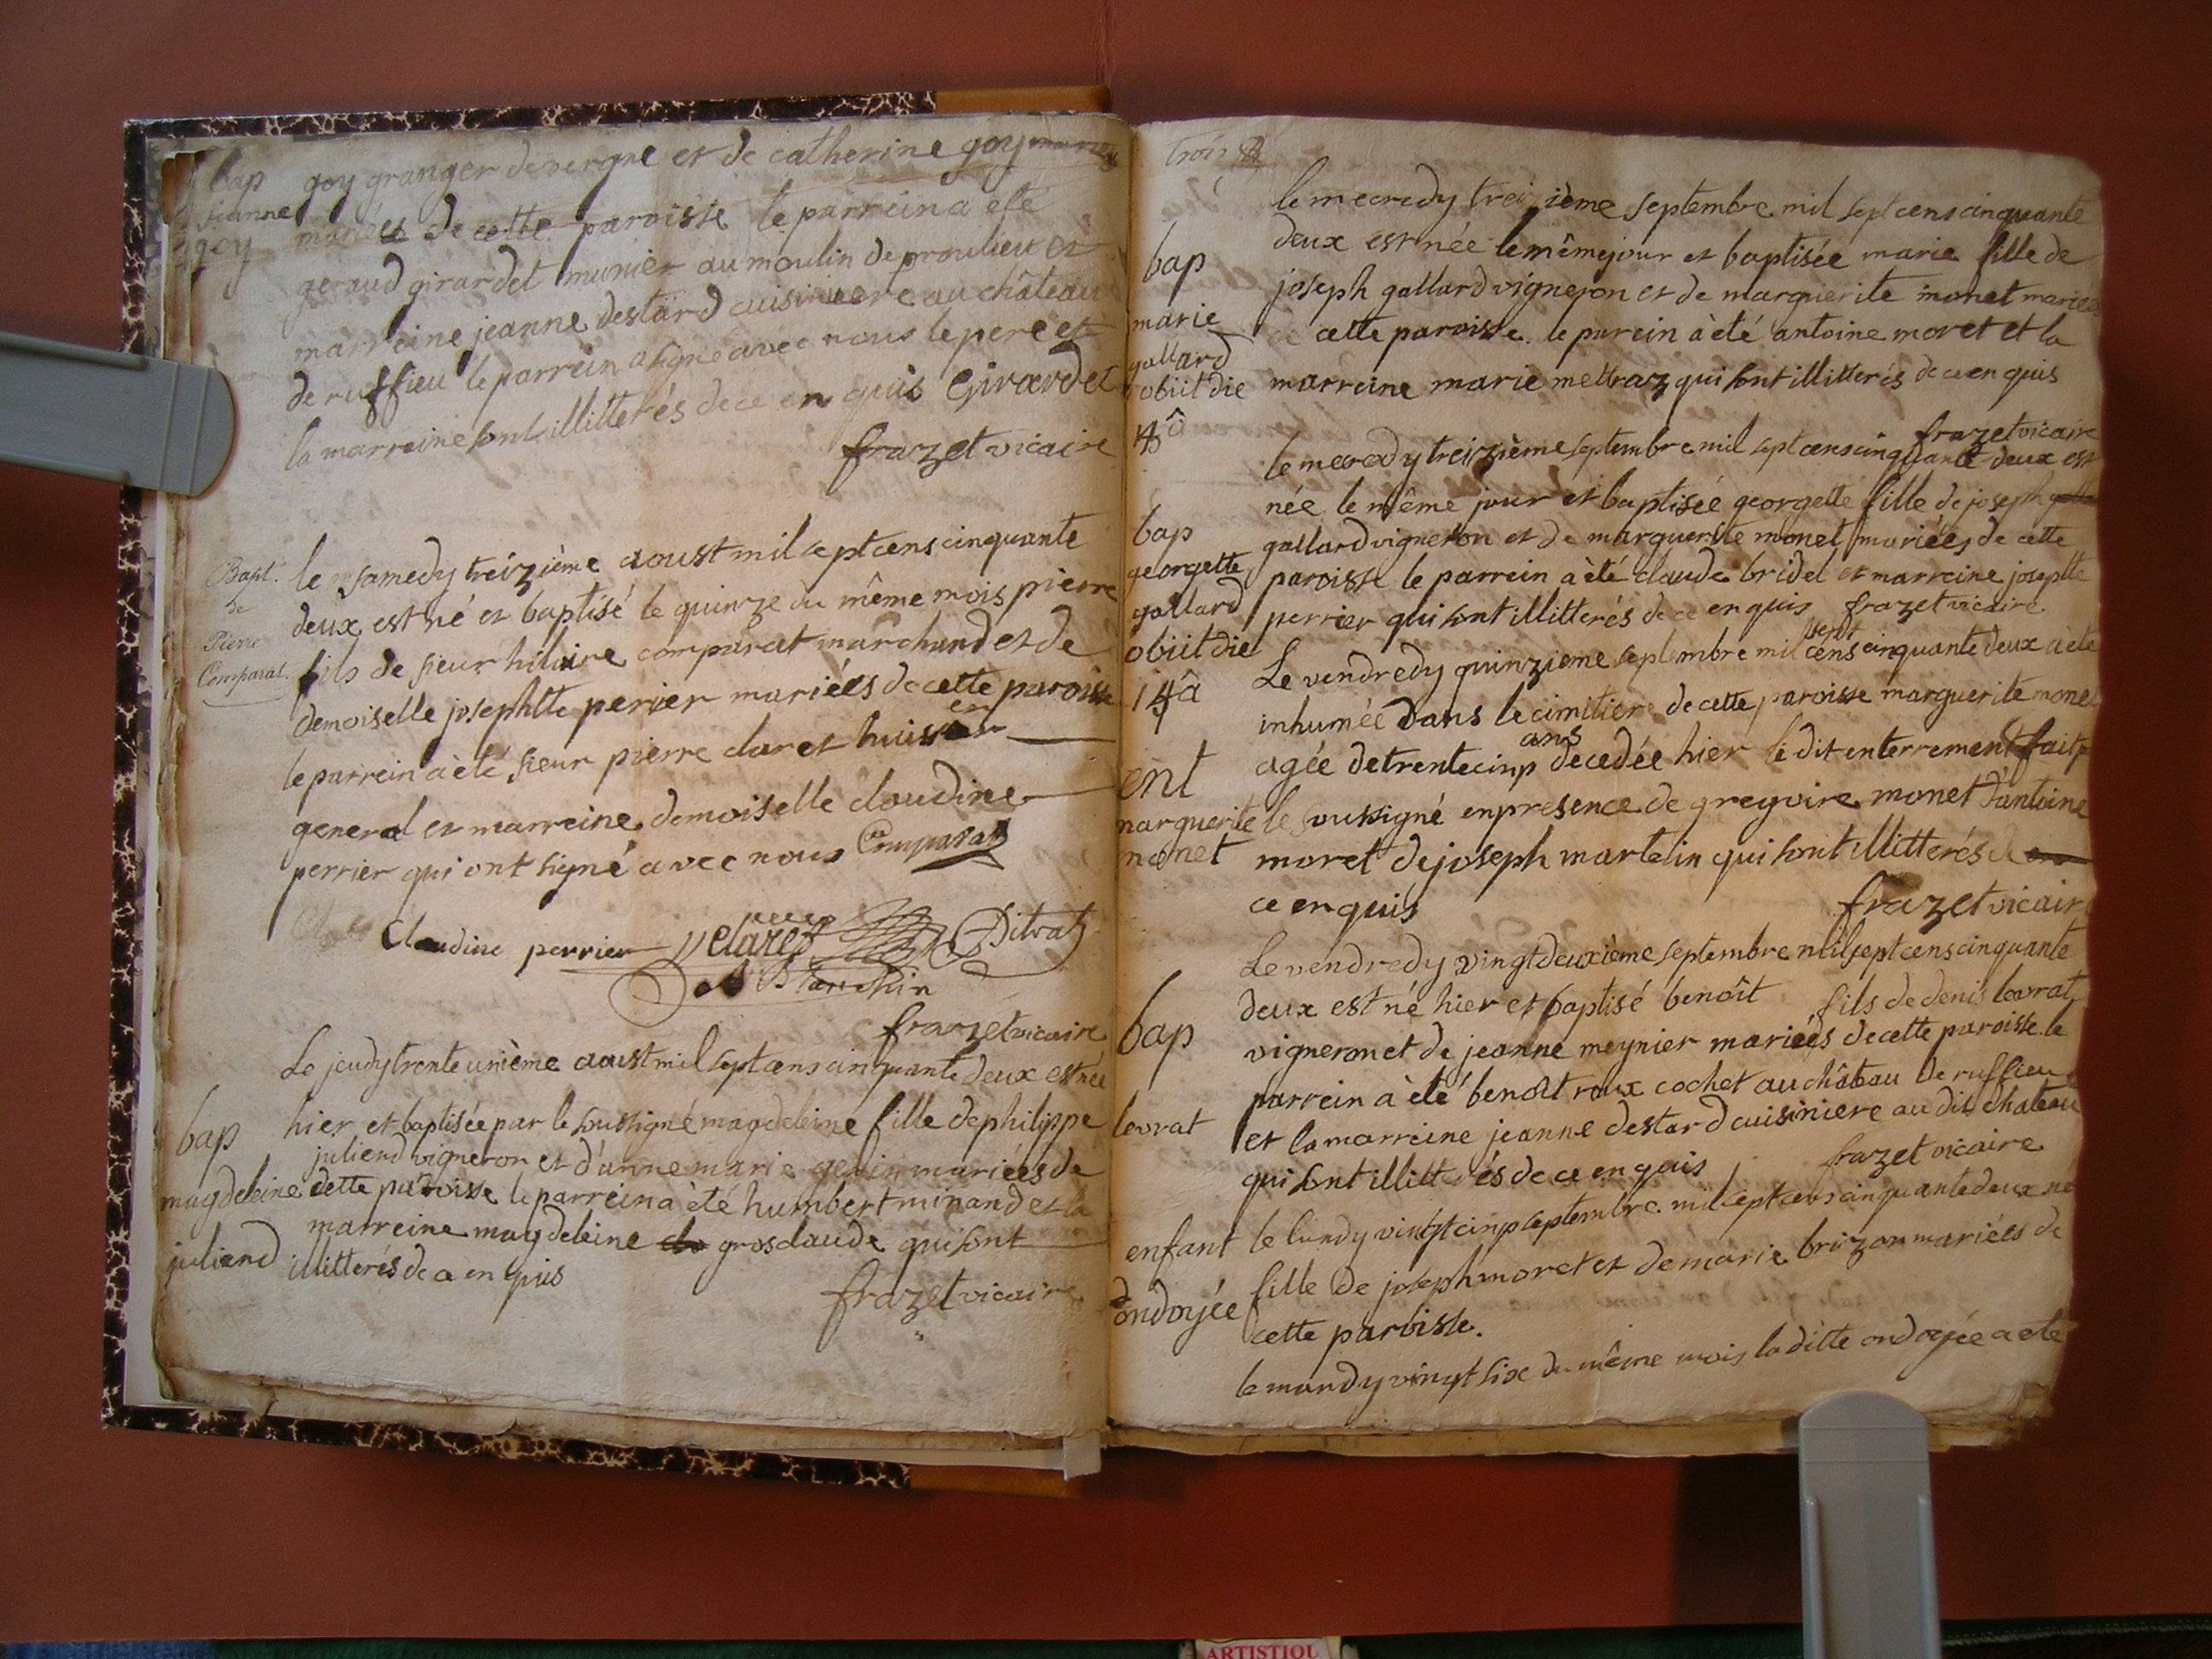 bap
jeanne
goy
goy granger de vergne et de catherine goy
mariées de cette paroisse le parrein a ete
geraud girardet munier au moulin de proulieu et
marreine jeanne destard cuisiniere au château
de ruffieu le parrein a signé avec nous le pere et
la marreine sont illitterés de ce en quis Girardet
frazet vicaire
Bapt.
de
Pierre
Comparat.
le samedy treizième aoust mil sept cens cinquante
deux est né et baptisé le quinze du même mois pierre
fils de sieur hilaire comparat marchand et de
demoiselle josephtte perrier mariées de cette paroisse
le parrein à èté sieur pierre claret huissier
general et marreine demoiselle claudine
perrier qui ont signé avec nous Comparat
Claudine perrier claret Ditrat
Blanchin
frazet vicaire
bap
magdeleine
juliend
Le jeudy trente unième aoust mil sept cens cinquante deux est née
hier et baptisée par le soussigné magdeleine fille de philippe
juliend vigneron et d'anne marie genin mariées de
cette paroisse le parrein a èté humbert minand et la
marreine magdeleine grosclaude qui sont
illitterés de ce en quis
frazet vicaire
trois
bap
marie
gallard
obiit die
le mecredy treizième septembre mil sept cens cinquante
deux est née le même jour et baptisée marie fille de
joseph gallard vigneron et de marguerite monet mariées
de cette paroisse. le parein à èté antoine moret et la
marreine marie mettraz qui sont illitterés de ce en quis
frazet vicaire
bap
georgette
gallard
obiit die
14â
le mecredy treizième septembre mil sept cens cinquante deux est
née le même jour et baptisée georgette fille de joseph
gallard vigneron et de marguerite monet mariées de cette
paroisse le parrein à èté claude bridel et marreine joseptte
perrier qui sont illitterés de ce en quis frazet vicaire
ent
marguerite
monet
Le vendredy quinzieme septembre mil sept cens cinquante deux à èté
inhumée dans le cimitiere de cette paroisse marguerite monet
agée de trente cinq ans decedée hier le dit enterrement fait p
le soussigné en presence de gregoire monet d'antoine
moret de joseph martelin qui sont illitterés de
ce en quis
frazet vicaire
bap
levrat
Le vendredy vingt deuxième septembre mil sept cens cinquante
deux est né hier et baptisé benoît fils de denis levrat
vigneron et de jeanne meynier mariées de cette paroisse le
parrein à èté benoît roux cochet au château de ruffieu
et la marreine jeanne destard cuisiniere au dit chateau
qui sont illitterés de ce en quis frazet vicaire
enfant
ondoyée
le lundy vingt cinq septembre mil sept cens cinquante deux né
fille de joseph moret et de marie brizon mariées de
cette paroisse.
le mardy vingt six du même mois la ditte ondoyée a été
ARTISTIQU